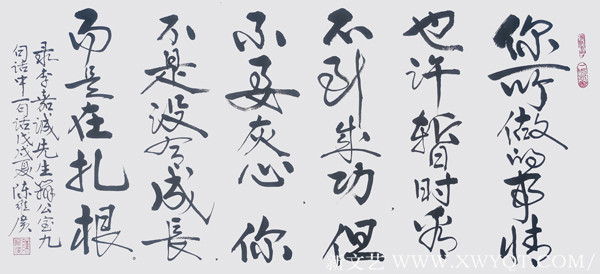 你所做的事情
也许暂时看
不到成功但
不要灰心你
不是没有成長
而是在扎根
录李嘉诚先生辦公室九
句话中一句话戊戌夏陈
新文艺 WWW.XWYOT.COM/